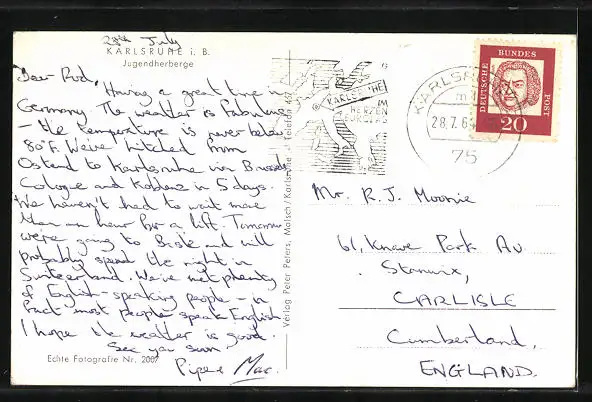 28th July
KARLSRUHE i. B.
Jugendherberge
Dear Rod,
Having a great time in
Germany. The weather is fabulous
- the temperature is never below
80°F. We've hitched from
Ostend to Karlsruhe via Brussels
Cologne and Koblenz in 5 days.
We haven't had to wait more
than an hour for a lift. Tomorrow
we're going to Basle and will
probably spend the night in
Switzerland. We've met plenty
of English-speaking people - in
fact most people speak English.
I hope the weather is good.
See you soon.
Mac.
Echte Fotografie Nr. 2007
Verlag Peter Peters, Malsch/Karlsruhe Telefon
KARLSRUHE
IM
HERZEN
EUROPAS
KARLSRUHE
28.7.64
75
DEUTSCHE
BUNDES
POST
20
Mr. R. J. Moonie
61, Knowe Park Av
Stanwix,
CARLISLE
Cumberland,
ENGLAND.